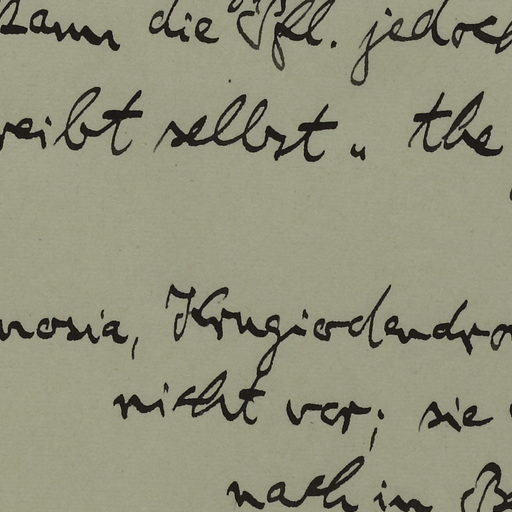 kann die Pfl. jedoch
reibt selbst „ the
nosia, Krugiodendron
nicht vor; sie
nach in